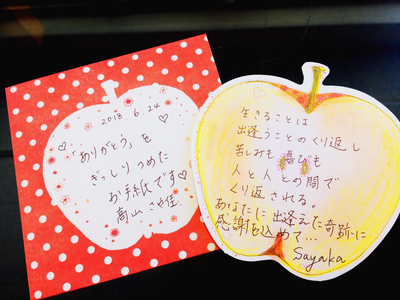 2018.6.24
「ありがとう」を
ぎっしりつめた
お手紙です♡
生きることは
出逢うことのくり返し
苦しみも喜びも
人と人との間で
くり返される。
あなたに出逢えた奇跡に
感謝も込めて…
Sayaka